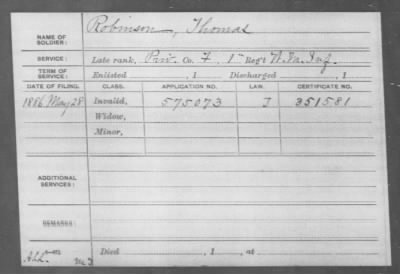 NAME OF SOLDIER: Robinson, Thomas
SERVICE: Late rank, Priv. Co. F, 1st Reg't W. Va. Inf.
TERM OF SERVICE: Enlisted , 1 Discharged , 1
DATE OF FILING. CLASS. APPLICATION NO. LAW. CERTIFICATE NO.
1886 May 28 Invalid, 575073 J 351581
Widow,
Minor,
ADDITIONAL SERVICES:
REMARKS:
Died , 1 , at